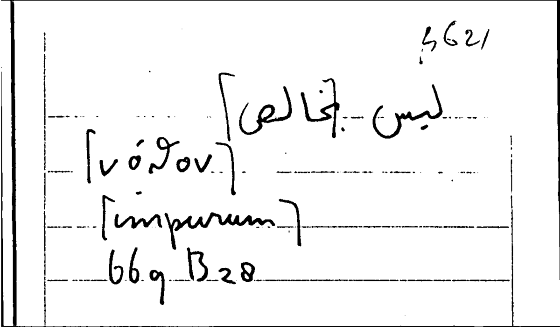 ليس [بخالص]
[νόϑον]
[impurum]
669 B28